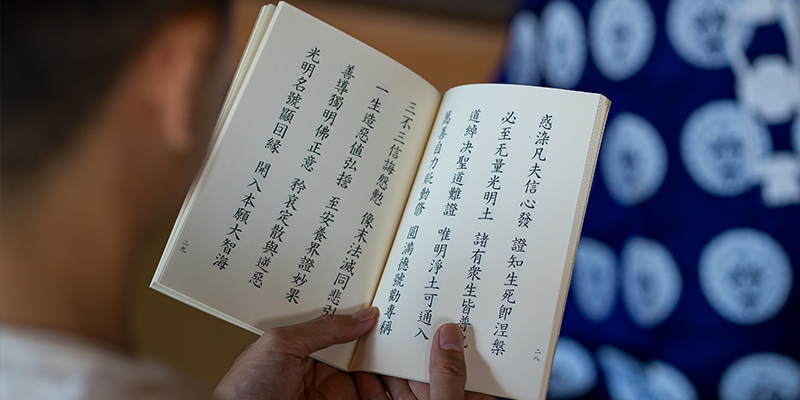 惑染凡夫信心發　證知生死即涅槃
必至无量光明土　諸有衆生皆普化
道綽決聖道難證　唯明淨土可通入
萬善自力貶勤修　圓滿德號勸專稱
二八
三不三信誨慇懃　像末法滅同悲引
一生造惡値弘誓　至安養界證妙果
善導獨明佛正意　矜哀定散與逆惡
光明名號顯因縁　開入本願大智海
二九